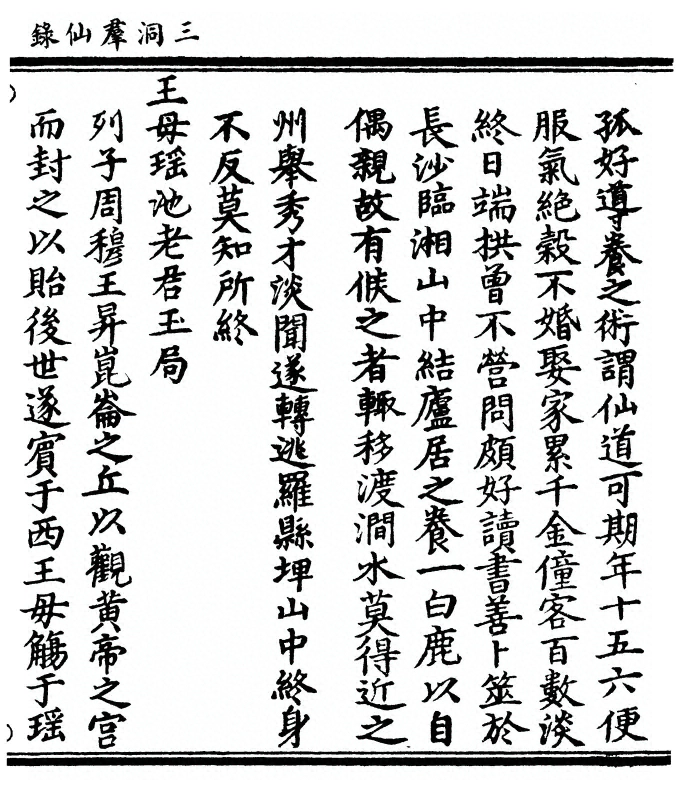 三洞羣仙錄
孤好導養之術謂仙道可期年十五六便
服氣絶穀不婚娶家累千金僮客百數淡
終日端拱曾不營問頗好讀書善卜筮於
長沙臨湘山中結廬居之養一白鹿以自
偶親故有候之者輒移渡澗水莫得近之
州舉秀才淡聞遂轉逃羅縣埤山中終身
不反莫知所終
王母瑶池老君玉局
列子周穆王昇崑崙之丘以觀黃帝之宫
而封之以貽後世遂賓于西王母觴于瑶